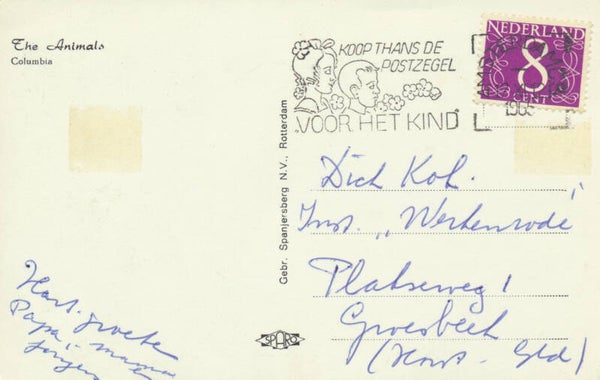 The Animals
Columbia
KOOP THANS DE
POSTZEGEL
VOOR HET KIND
NEDERLAND
8
CENT
1965
Gebr. Spanjersberg N.V., Rotterdam
SPARO
Dick Kok.
Inst. „Werkenrode"
Plakseweg 1
Groesbeek
(Gld)
Hart. groete
Papa,